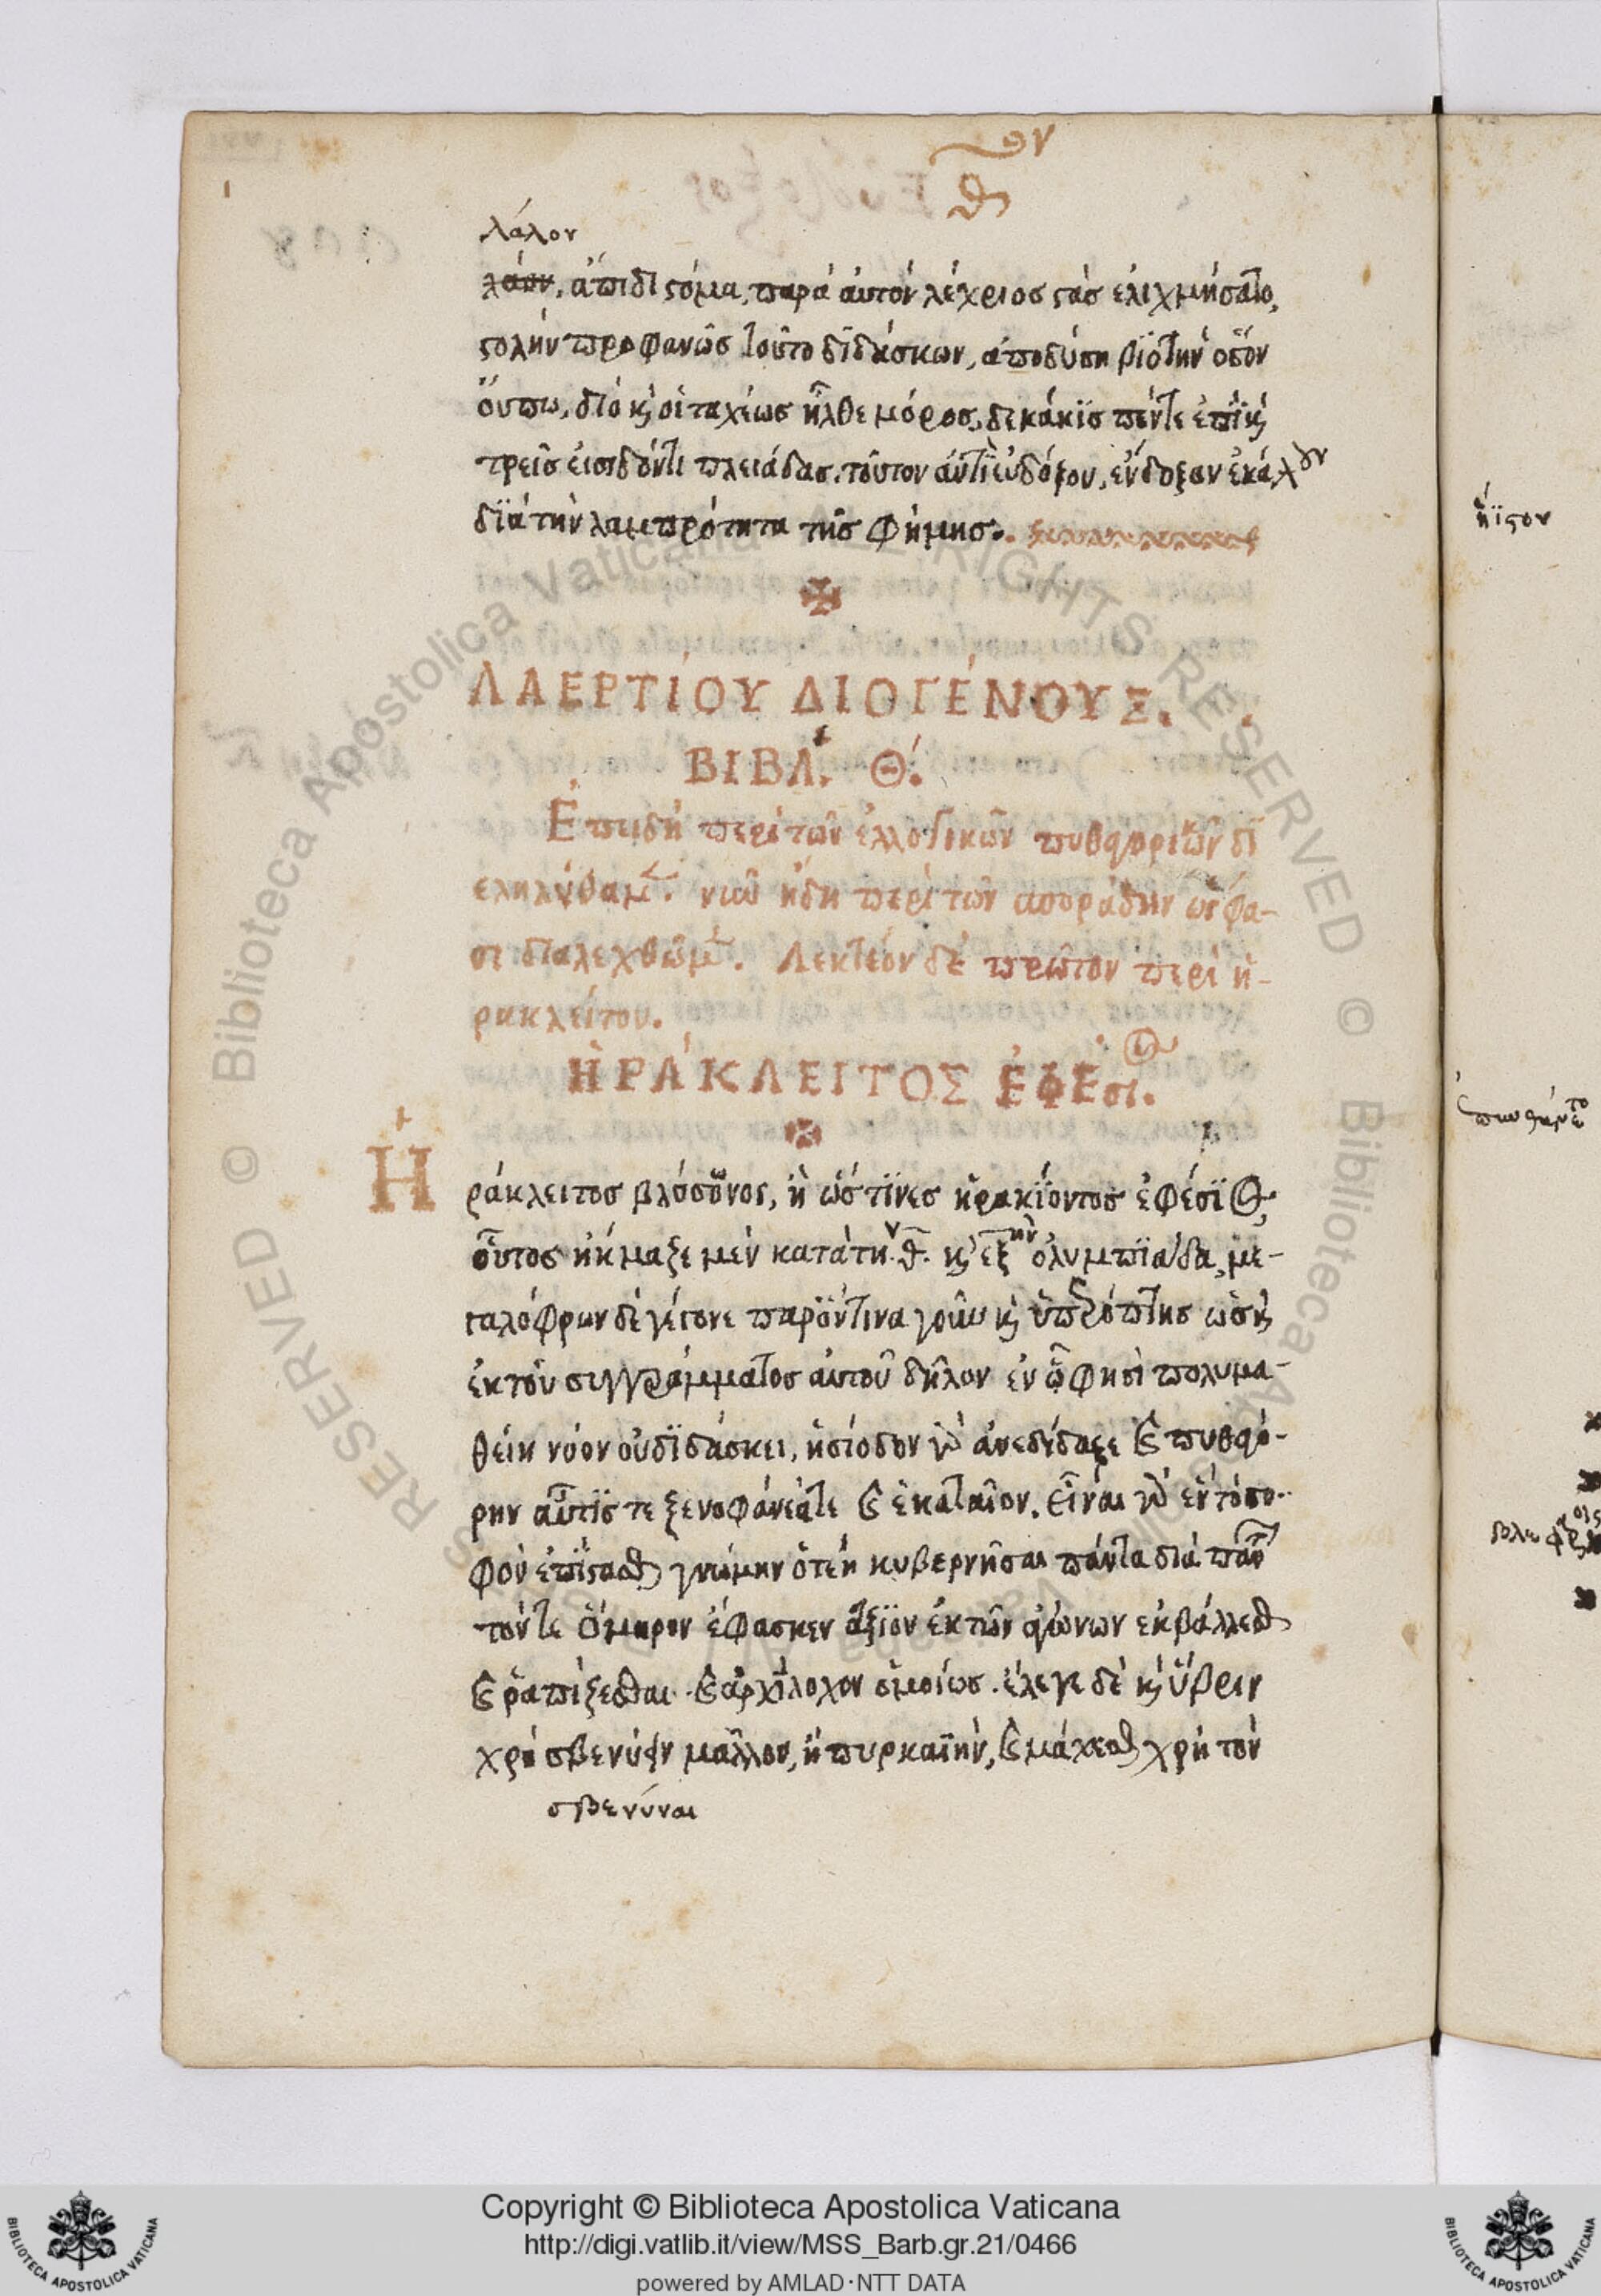 ον
θ
λάλον
λάον, ἀπιδὶ στόμα, παρὰ ἀυτὸν λέχριος στὰς ἐλιχμήσατο,
στολὴν προφανῶς τοῦτο διδάσκων, ἀποδύση βιότην ὅσον
ὄυπω, διὸ καὶ οἱ ταχέως ἦλθε μόρος, δεκάκις πέντε ἐπὶ καὶ
τρεῖς ἐισιδόντι πλειάδας. τοῦτον ἀντὶ ἐυδόξου, ἔνδοξον ἐκάλουν
διὰ τὴν λαμπρότητα τῆς φήμης.
ΛΑΕΡΤΊΟΥ ΔΙΟΓΈΝΟΥΣ.
ΒΙΒΛ. Θ.
Ἐπειδὴ περὶ τῶν ἐλλογίμων πυθαγορικῶν δι
εληλύθαμεν. νῦν ἤδη περὶ τῶν σποράδην ὥς φα-
σι διαλεχθῶμεν. Λεκτέον δὲ πρῶτον περὶ ἡ-
ρακλείτου.
ἩΡΆΚΛΕΙΤΟΣ ἘΦΈσιος.
Ἡ
ράκλειτος βλόσωνος, ἢ ὥς τινες ἡρακίοντος ἐφέσιος,
οὗτος ἤκμαζε μὲν κατὰ τὴν θ. καὶ ἑξην ὀλυμπιάδα, με-
γαλόφρων δὲ γέγονε παρ' ὅντινα γοῦν καὶ ὑπερόπτης ὡς καὶ
ἐκ τοῦ συγγράμματος ἀυτοῦ δῆλον ἐν ᾧ φησὶ πολυμα-
θείη νόον οὐ διδάσκει, ἡσίοδον γὰρ ἀνεδίδαξε καὶ πυθαγό-
ρην αὖτίς τε ξενοφάνεά τε καὶ ἑκαταῖον. Εἶναι γὰρ ἓν τὸ σο-
φὸν ἐπίστασθαι γνώμην ὅτε ἢ κυβερνῆσαι πάντα διὰ πάντων
τόν τε ὅμηρον ἔφασκεν ἄξιον ἐκ τῶν ἀγώνων ἐκβάλλεσθαι
καὶ ῥαπίζεσθαι. καὶ ἀρχίλοχον ὁμοίως. ἔλεγε δὲ καὶ ὕβριν
χρὴ σβενύειν μᾶλλον, ἢ πυρκαϊήν, καὶ μάχεσθαι χρὴ τὸν
σβενύναι
ἥϊστον
Copyright © Biblioteca Apostolica Vaticana
http://digi.vatlib.it/view/MSS_Barb.gr.21/0466
powered by AMLAD·NTT DATA